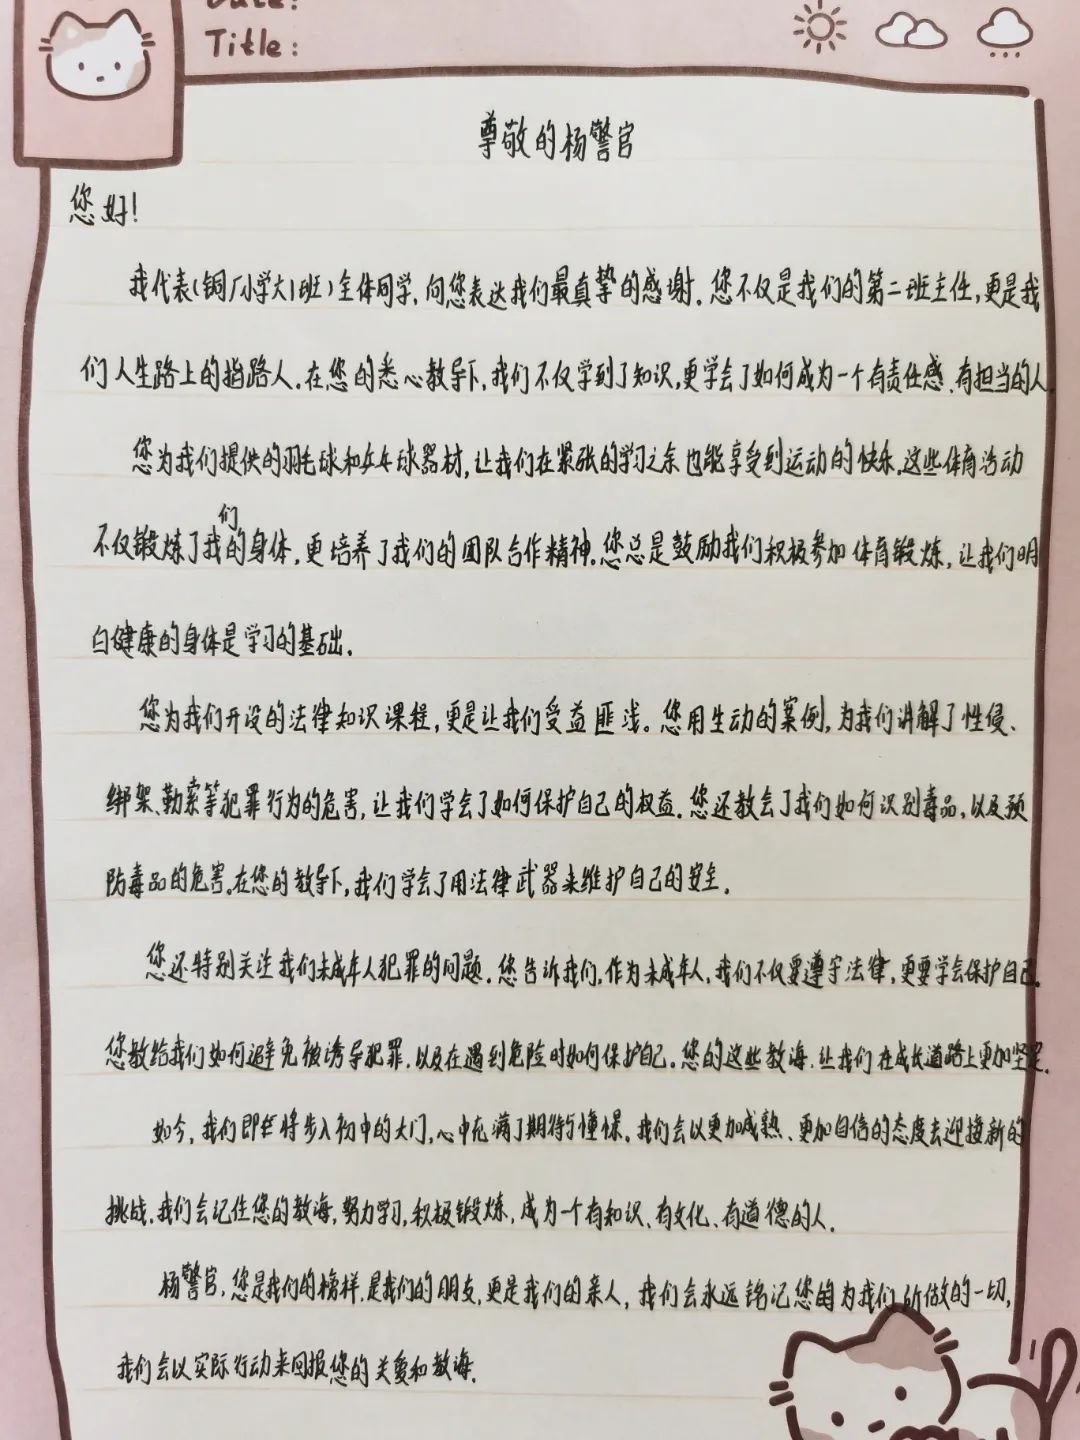 Title:
尊敬的杨警官
您好!
我代表(铜厂小学大1班)全体同学,向您表达我们最真挚的感谢.您不仅是我们的第二班主任,更是我
们人生路上的指路人.在您的悉心教导下,我们不仅学到了知识,更学会了如何成为一个有责任感、有担当的人.
您为我们提供的羽毛球和乒乓球器材,让我们在紧张的学习之余也能享受到运动的快乐.这些体育活动
们
不仅锻炼了我的身体,更培养了我们的团队合作精神.您总是鼓励我们积极参加体育锻炼,让我们明
白健康的身体是学习的基础.
您为我们开设的法律知识课程,更是让我们受益匪浅。您用生动的案例,为我们讲解了性侵、
绑架、勒索等犯罪行为的危害,让我们学会了如何保护自己的权益.您还教会了我们如何识别毒品,以及预
防毒品的危害.在您的教导下,我们学会了用法律武器来维护自己的安全.
您还特别关注我们未成年人犯罪的问题.您告诉我们,作为未成年人,我们不仅要遵守法律,更要学会保护自己.
您教给我们如何避免被诱导犯罪.以及在遇到危险时如何保护自己。您的这些教诲.让我们在成长道路上更加坚定.
如今,我们即将步入初中的大门,心中充满了期待与憧憬。我们会以更加成熟、更加自信的态度去迎接新的
挑战.我们会记住您的教诲,努力学习,积极锻炼,成为一个有知识、有文化、有道德的人.
杨警官,您是我们的榜样,是我们的朋友,更是我们的亲人,我们会永远铭记您的为我们所做的一切,
我们会以实际行动来回报您的关爱和教诲.